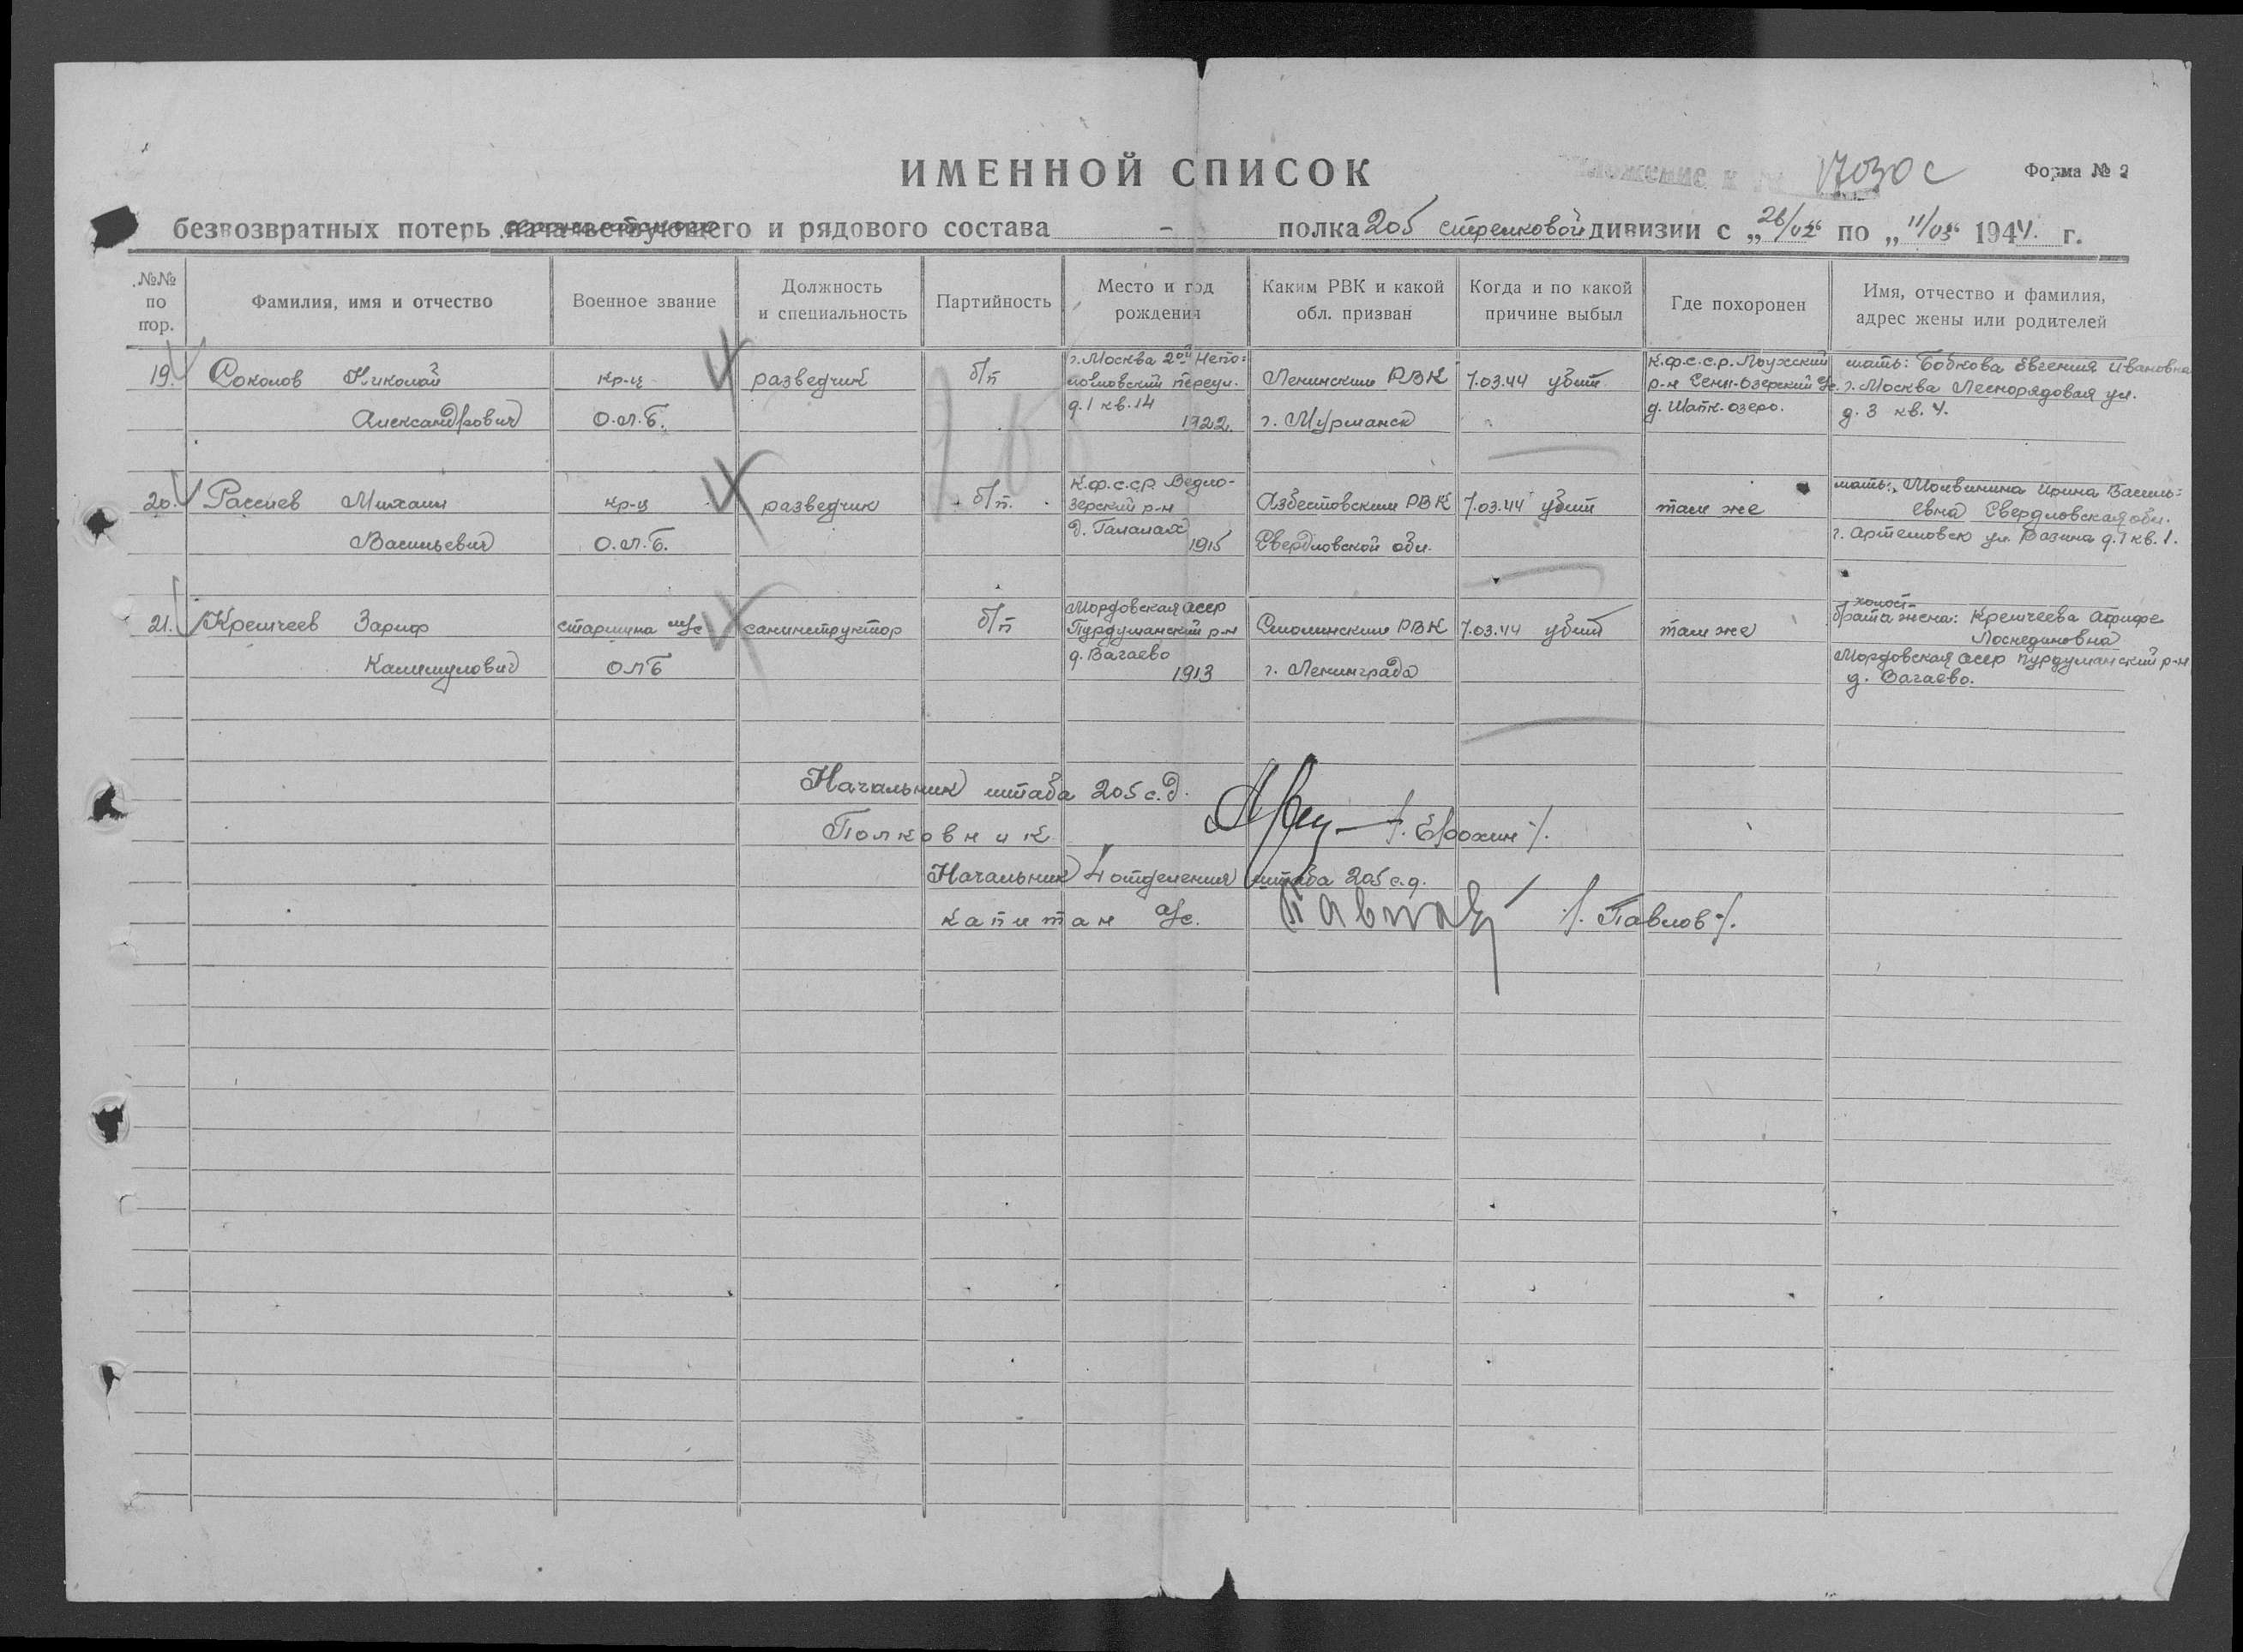 ИМЕННОЙ СПИСОК
17030 с
Форма № 2
безвозвратных потерь и рядового состава - полка 205 стрелковой дивизии с „26/02“ по „11/03“ 1944 г.
№№ по пор.
Фамилия, имя и отчество
Военное звание
Должность и специальность
Партийность
Место и год рождения
Каким РВК и какой обл. призван
Когда и по какой причине выбыл
Где похоронен
Имя, отчество и фамилия, адрес жены или родителей
19. Соколов Николай
Александрович
кр-ц
О.Л.Б.
разведчик
б/п
г. Москва 2ой
переул.
д. 1 кв. 14
1922.
Ленинским РВК
г. Мурманск
7.03.44 убит
К.ф.с.с.р. Лоухский
р-н
д. Шапк-озеро.
мать: Бобкова Евгения Ивановна
г. Москва Леснорядовая ул.
д. 3 кв. 4.
20. Рассиев Михаил
Васильевич
кр-ц
О.Л.Б.
разведчик
б/п.
К.ф.с.с.р. Ведло-
зерский р-н
д.
1915
Азбестовским РВК
Свердловской обл.
7.03.44 убит
там же
мать: Ирина Василь=
евна Свердловская обл.
г. Артемовск ул. д. 1 кв. 1.
21. Кремчеев Зариф
Калимулович
старшина м/с
ОЛБ
санинструктор
б/п
Мордовская асср
р-н
д. Вагаево
1913
Смолинским РВК
г. Ленинграда
7.03.44 убит
там же
холост-
брата жена: Кремчеева Афифе
Мордовская асср р-н
д. Вагаево.
Начальник штаба 205 с.д.
Полковник /. Ерохин /.
Начальник 4 отделения штаба 205 с.д.
капитан а/с. Павлов /. Павлов /.